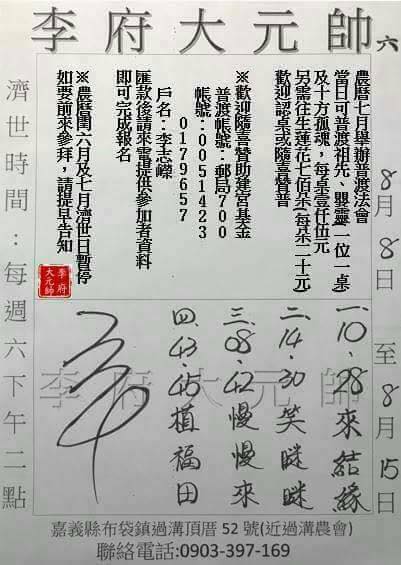 李府大元帥 六
8月8日至8月15日
農曆七月舉辦普渡法會
當日可普渡祖先、嬰靈(一位一桌)
及十方孤魂，每桌壹仟伍元
另需往生蓮花七佰朵(每朵二十元)
歡迎認桌或隨喜贊普
※歡迎隨喜贊助建宮基金
普渡帳號:郵局700
帳號:0051423
0179657
戶名:李志嶸
匯款後請來電提供參加者資料
即可完成報名
※農曆閏六月及七月濟世日暫停
如要前來參拜，請提早告知
李府大元帥
濟世時間:每週六下午二點
李府大元帥
一、10、28來結緣
二、14、30笑瞇瞇
三、08、42慢慢來
四、43、45植福田
嘉義縣布袋鎮過溝頂厝52號(近過溝農會)
聯絡電話:0903-397-169